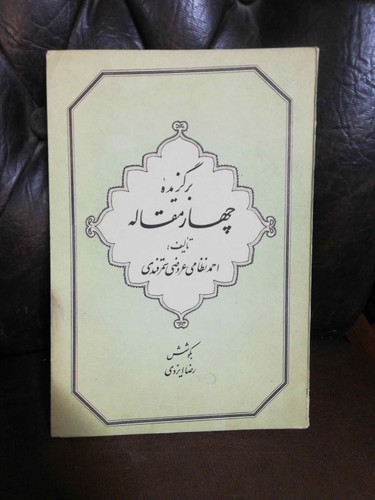 برگزیدهٔ
چهار مقاله
تألیف:
احمد نظامی عروضی سمرقندی
بکوشش
رضا ایزدی